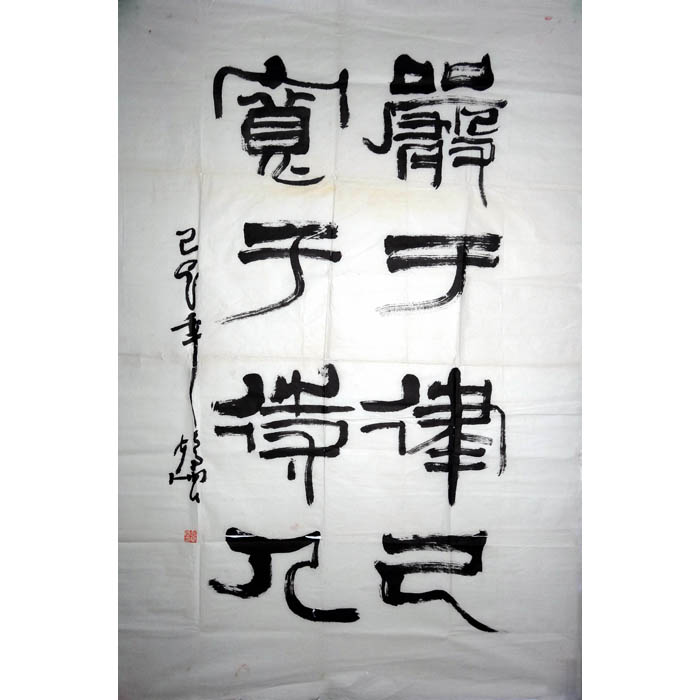 嚴于律己
寬于待人
己卯年